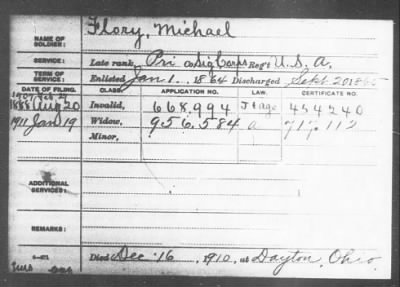 NAME OF SOLDIER: Flory, Michael
SERVICE: Late rank, Pri Co. Sig Corps Reg't U. S. A.
TERM OF SERVICE: Enlisted Jan 1. 1864 Discharged Sept 20 1865
DATE OF FILING. CLASS. APPLICATION NO. LAW. CERTIFICATE NO.
1907 Feb
1888 Aug 20 Invalid, 668,994 454240
1911 Jan 19 Widow, 956,584 a 717.112
Minor,
ADDITIONAL SERVICES:
REMARKS:
Died Dec. 16, 1910, at Dayton, Ohio